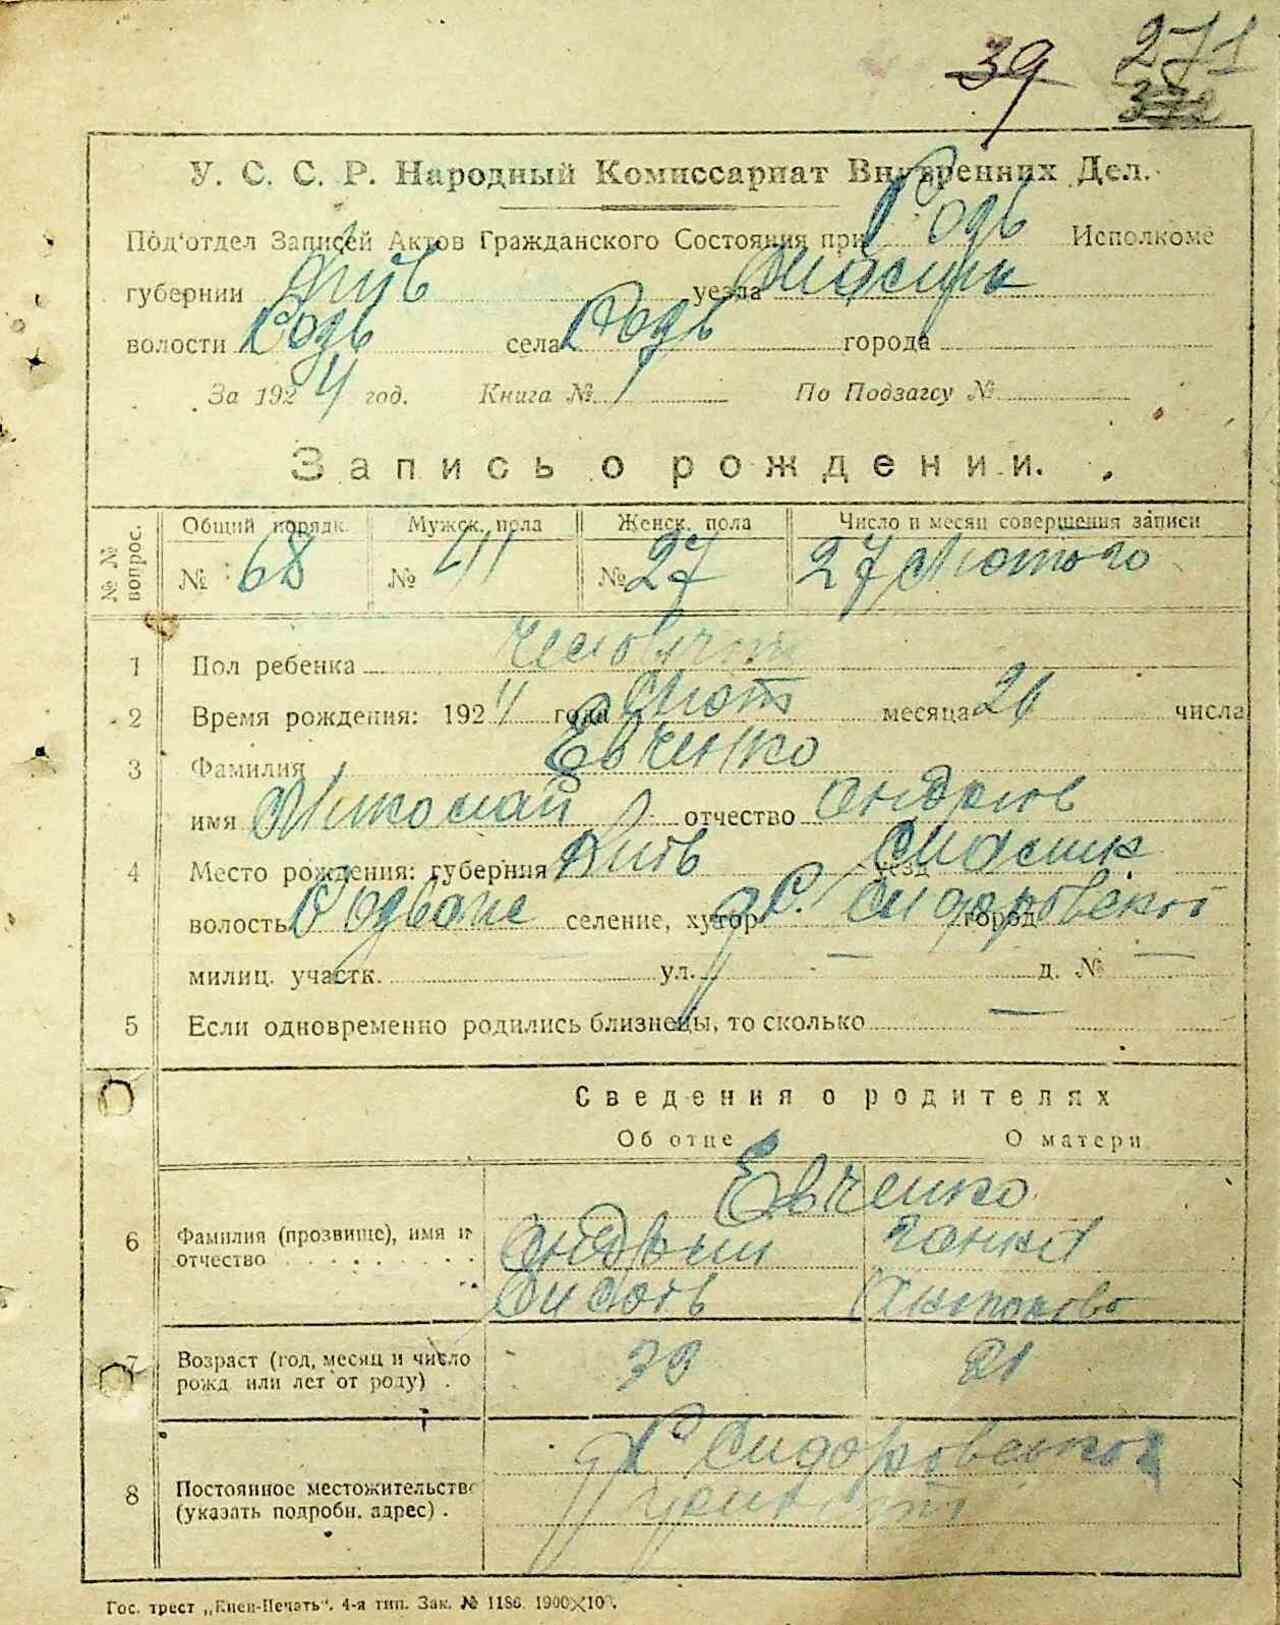 39 271
372
У. С. С. Р. Народный Комиссариат Внутренних Дел.
Под'отдел Записей Актов Гражданского Состояния при Родв Исполкоме
губернии Київ уезда
волости Родв села Родв города
За 1924 год. Книга № 1 По Подзагсу №
Запись о рождении.
№ № вопрос. Общий порядк. Мужск. пола Женск. пола Число и месяц совершения записи
№ 68 № 41 № 27 27 Лютого
1 Пол ребенка
2 Время рождения: 1924 года Лют месяца 26 числа
3 Фамилия Евченко
имя Миколай отчество Андріїв
4 Место рождения: губерния Київ уезд
волость селение, хутор город
милиц. участк. — ул. — д. № —
5 Если одновременно родились близнецы, то сколько —
Сведения о родителях
Об отце О матери
Евченко
6 Фамилия (прозвище), имя и Андрій Ганна
отчество
7 Возраст (год, месяц и число 21
рожд или лет от роду) .
8 Постоянное местожительство
(указать подробн. адрес) .
Гос. трест „Киев-Печать“. 4-я тип. Зак. № 1186. 1900×10